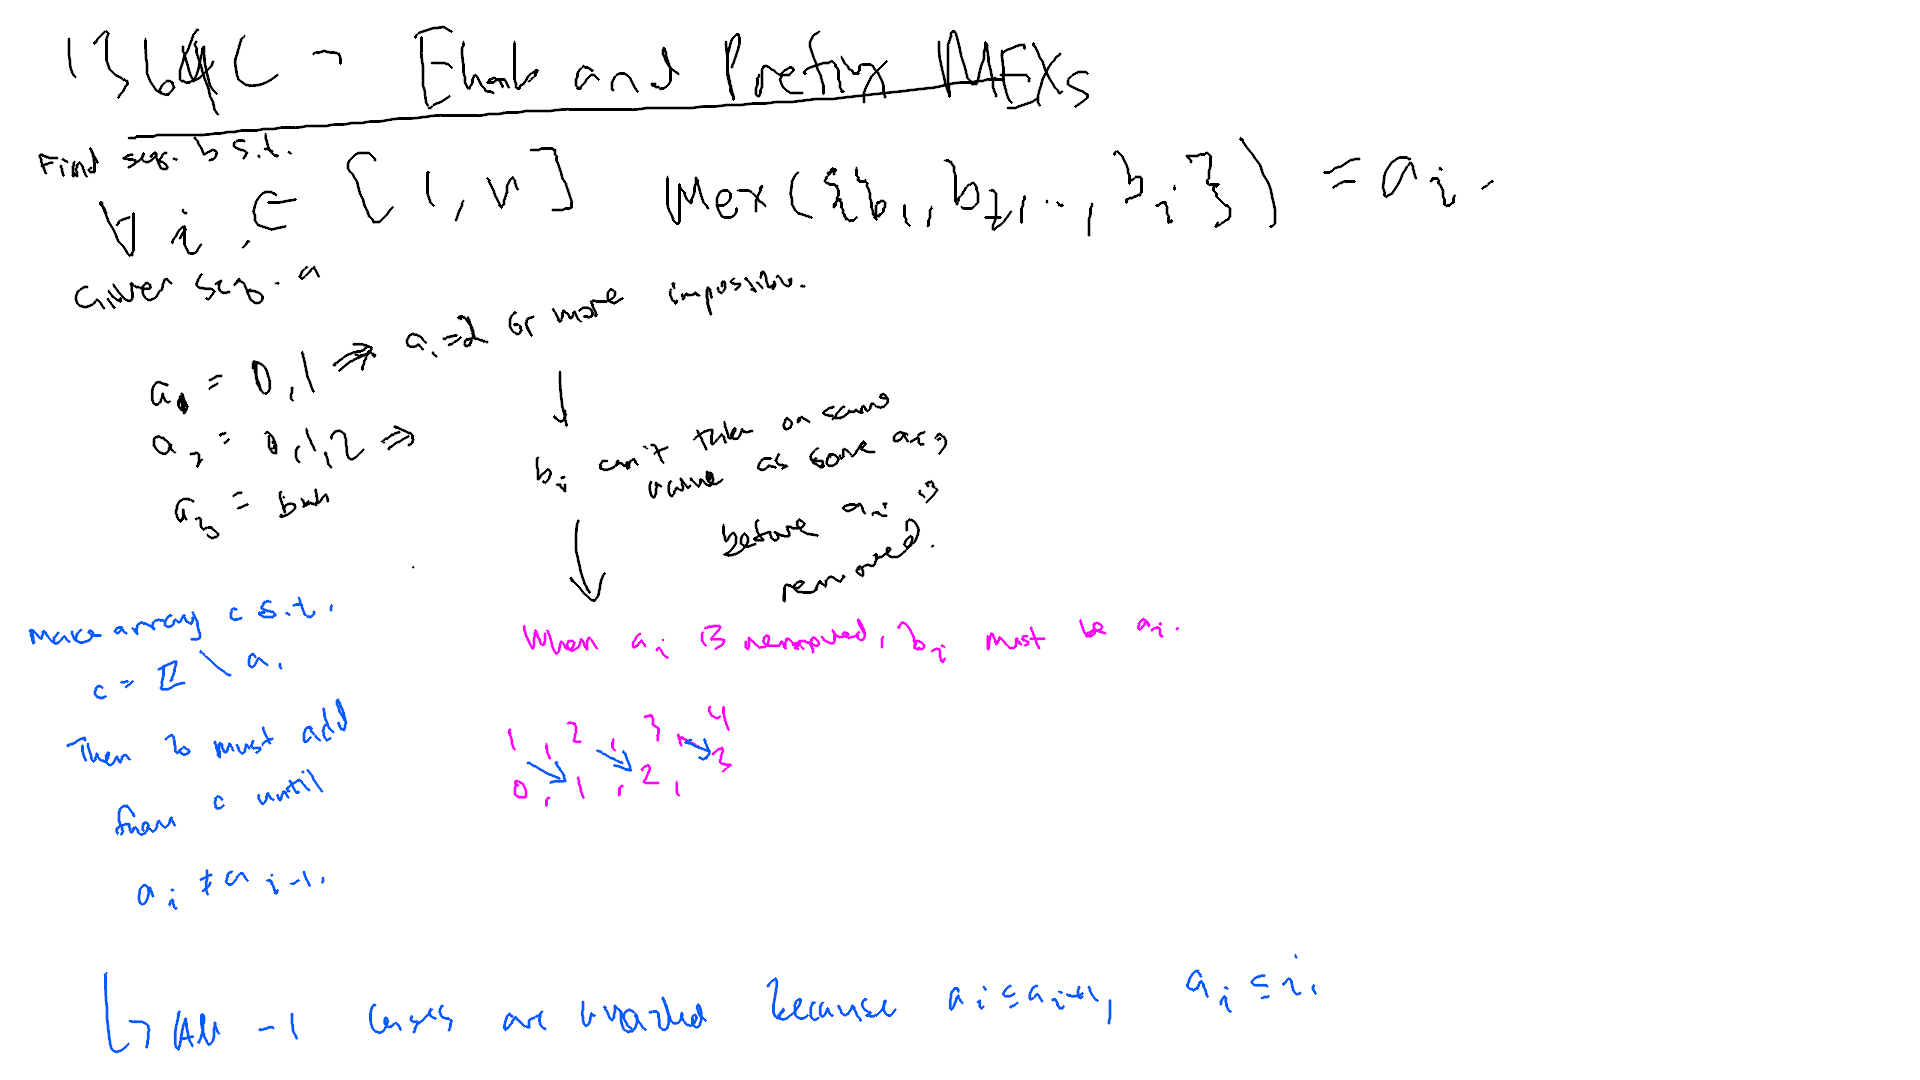 1364C - Ehab and Prefix MEXs
Find seq. b s.t.
∀ i ∈ [1, n] Mex({b₁, b₂, .., b_i}) = a_i.
Given seq. a
a₁ = 0, 1 ⇒ a_i = 2 or more impossible.
a₂ = 0, 1, 2 ⇒
a₃ =
↓
b_i can't take on same
value as some a_i,
before a_i is
removed.
↓
When a_i is removed, b_i must be a_i.
1, 2, 3, 4
0, 1, 2, 3
Make array c s.t.
c = ℤ \ a.
Then b must add
from c until
a_i ≠ a_{i-1}.
↳ All -1 cases are avoided because a_i ≤ a_{i+1}, a_i ≤ i.